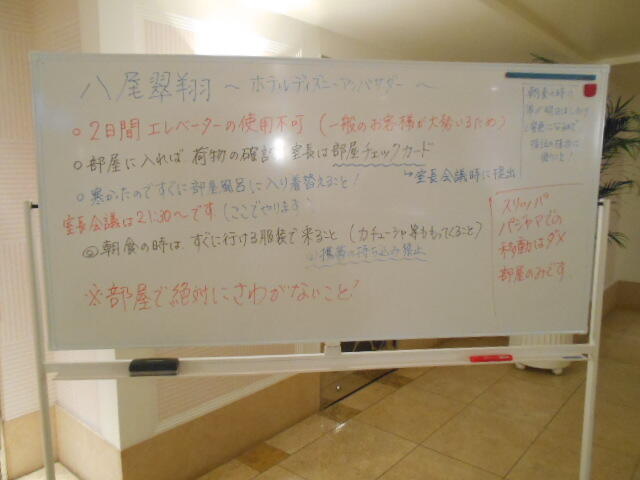 八尾翠翔 ～ ホテルディズニーアンバサダー ～
○ 2日間 エレベーターの使用不可 (一般のお客様が大勢いるため)
○ 部屋に入れば 荷物の確認 室長は部屋チェックカード
室長会議時に提出
○ 寒かったのですぐに部屋風呂に入り着替えること!
室長会議は21:30～です (ここでやります)
◎ 朝食の時は、すぐに行ける服装で来ること (カチューシャ等ももってくること)
携帯の持ち込み禁止
※部屋で絶対にさわがないこと!
朝食の時で
スリッパ
パジャマでの
移動はダメ
部屋のみです